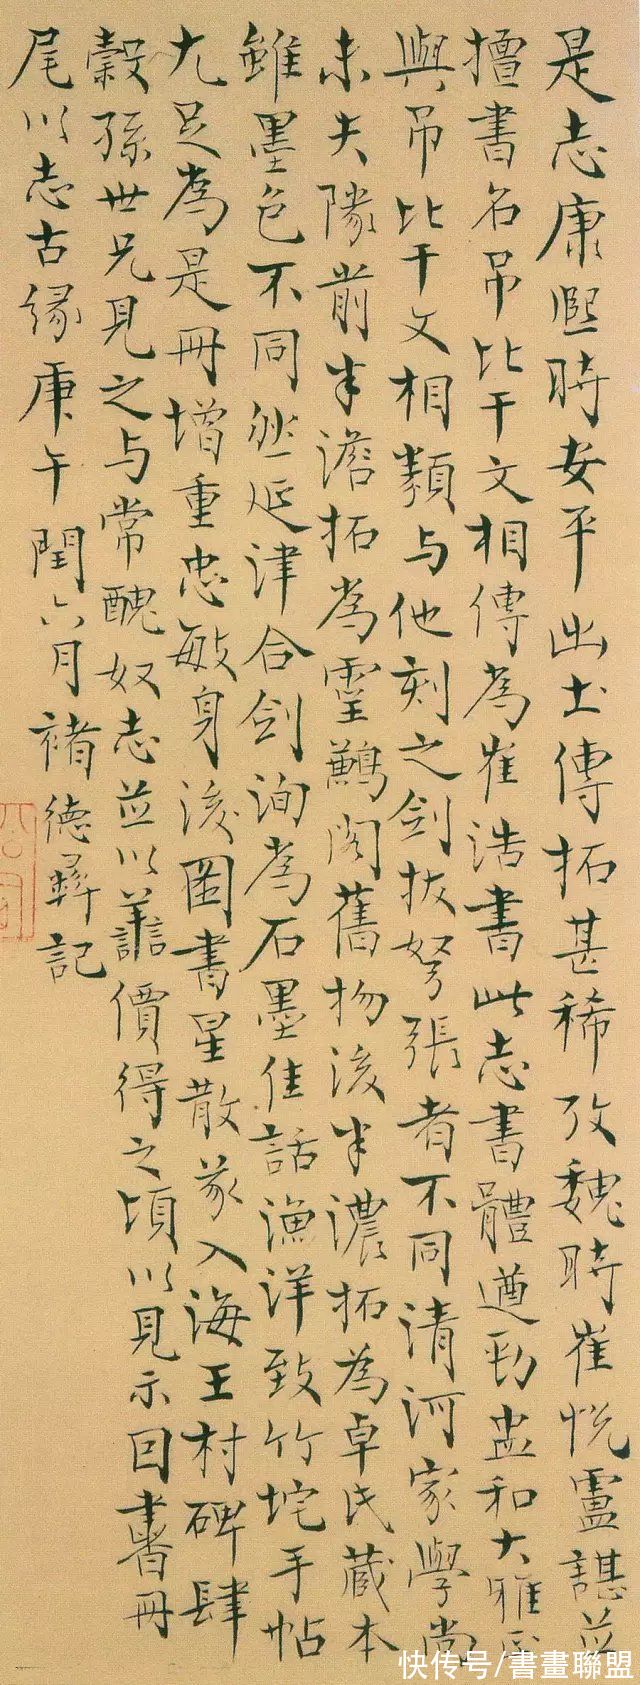 是志康熙時安平出土傳拓甚稀攷魏時崔悅盧諶並
擅書名吊比干文相傳為崔浩書此志書體遒勁盅和大雅
與吊比干文相類与他刻之劍拔弩張者不同清河家學尚
未失隊前半澹拓為靈鶼閣舊物後半濃拓為卓氏藏本
雖墨色不同然延津合劍洵為石墨佳話漁洋致竹垞手帖
尤足為是冊增重忠敏身後圖書星散荻入海王村碑肆
穀孫世兄見之与常醜奴志並以善價得之頃以見示因書冊
尾以志古緣庚午閏六月褚德彝記
快传号/書畫聯盟